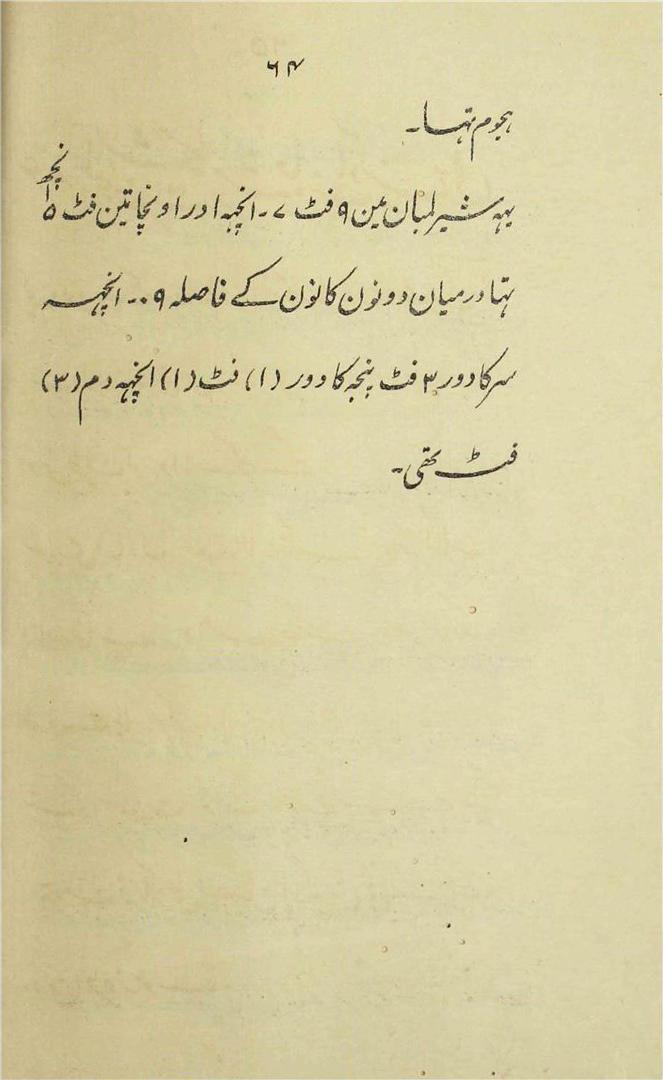 ۶۴
ہجوم تہا۔
یہہ شیر لمبان مین ۹ فٹ ۷۔ انچہہ اور اونچا تین فٹ ۵ انچھ
تہا درمیان دونون کانون کے فاصلہ ۰۹۔ انچہہ
سر کا دور ۳ فٹ پنجہ کا دور (۱) فٹ (۱) انچہہ دم (۳)
فٹ تھی۔